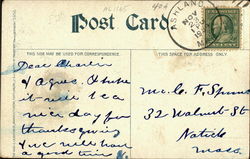 AL165 404
Post Card
ASHLAND
NOV
THIS SIDE MAY BE USED FOR CORRESPONDENCE.
THIS SPACE FOR ADDRESS ONLY.
Dear Charlie
& Agnes. I hope
it will be a
nice day for
thanksgiving
I we will have
a good time
Mr. C. F.
32 Walnut St
Natick
Mass.